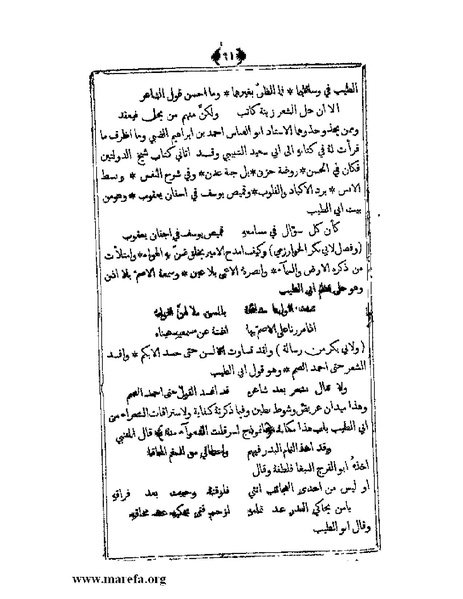 ﴿٦١﴾
الطيب في وسائلها * فما الظن بغيرها * وما احسن قول الشاعر
الا ان حل الشعر زينة كاتب ولكن منهم من يحل فيعقد
وممن يحذو حذوهما الاستاد ابو العباس احمد بن ابراهيم الضبي وما اظرف ما
قرأت له في كتابه الى ابي سعيد الشبيبي وقد اتاني كتاب شيخ الدولتين
فكان في الحسن * روضة حزن * بل جنة عدن * وفي شرح النفس * وبسط
الانس * برد الاكباد والقلوب * وقميص يوسف في اجفان يعقوب * وهو من
بيت ابي الطيب
كأن كل سؤال في مسامعه قميص يوسف في اجفان يعقوب
(وفصل لابي بكر الخوارزمي) وكيف امدح الامير بخلق ضن به الهواء * وامتلأت
من ذكره الارض والسماء * وابصره الاعمى بلا عين * وسمعه الاصم بلا اذن
وهو حل نظم ابي الطيب
(ولابي بكر من رسالة) ولقد تساوت الالسن حتى حسد الابكم * وافسد
الشعر حتى احمد الصمم * وهو قول ابي الطيب
ولا تبال بشعر بعد شاعره قد افسد القول حتى احمد الصمم
وهذا ميدان عريض وشوط بطين وفيما ذكرته كفاية ولاستراقات الشعراء من
ابي الطيب باب هذا مكانه قال المتنبي
وقد اخذ التمام البدر فيهم واعطاني من السقم المحاقا
اخذه ابو الفرج الببغا فلطفه وقال
او ليس من احدى العجائب انني فارقته وحييت بعد فراقه
يا من يحاكي البدر عند تمامه ارحم فتى يحكيه عند محاقه
وقال ابو الطيب
www.marefa.org